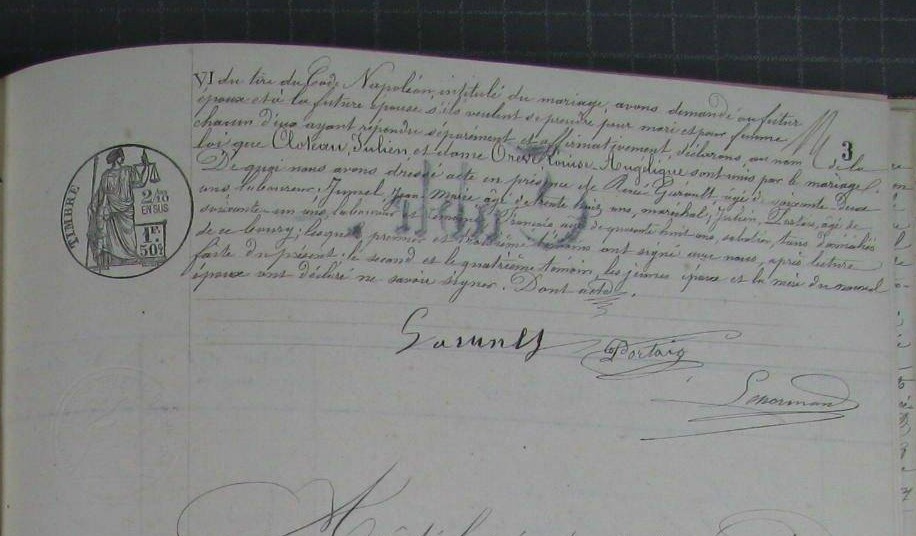 VI du titre du Code Napoléon, intitulé du mariage, avons demandé au futur
époux et à la future épouse s'ils veulent se prendre pour mari et pour femme
chacun d'eux ayant répondu séparément et affirmativement déclarons au nom de la
3
loi que Cloteau, Julien et dame Orève Louise Angélique sont unis par le mariage.
De quoi nous avons dressé acte en présence de René âgé de soixante deux
ans laboureur, Jean Marie âgé de trente huit ans, maréchal, Julien âgé de
soixante un ans, laboureur et François âgé de quarante huit ans, sabotier, tous domiciliés
de ce bourg; lesquels premier et troisième témoins ont signé avec nous, après lecture
faite du présent. le second et le quatrième témoin, les jeunes époux et la mère du nouvel
époux ont déclaré ne savoir signer. Dont acte.
TIMBRE
2/10
EN SUS
1F.
50C.
Portaig
Lenormand